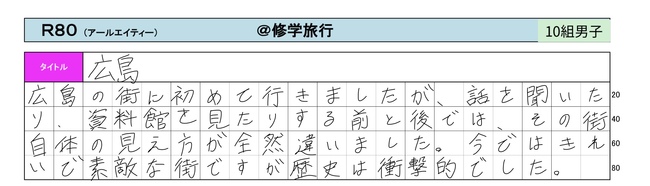 R80（アールエイティー） @修学旅行 10組男子
タイトル 広島
広島の街に初めて行きましたが、話を聞いた 20
り、資料館を見たりする前と後では、その街 40
自体の見え方が全然違いました。今ではきれ 60
いで素敵な街ですが歴史は衝撃的でした。 80